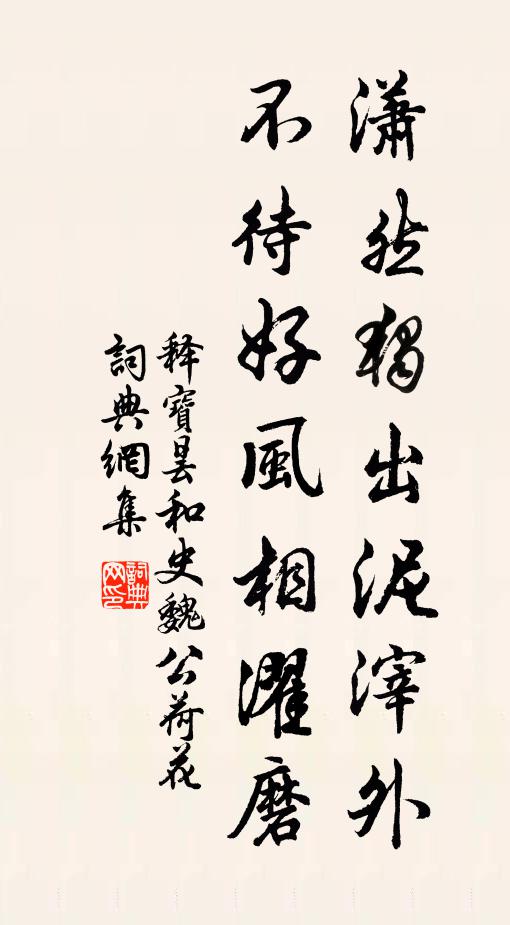 瀟然獨出泥滓外
不待好風相濯磨
释寶曇和史魏公荷花
詞典網集
詞典网印